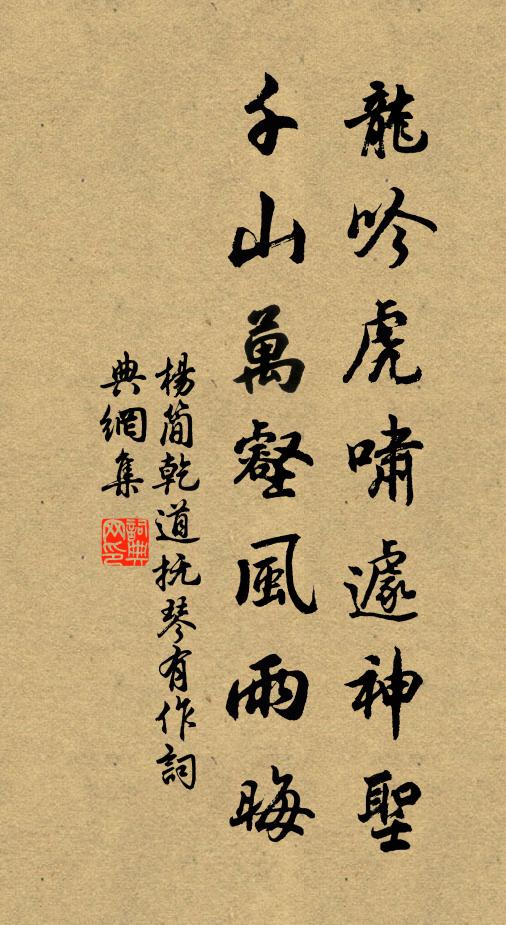 龍吟虎嘯遽神聖
千山萬壑風雨晦
楊簡乾道抚琴有作詞
典網集
詞典网印